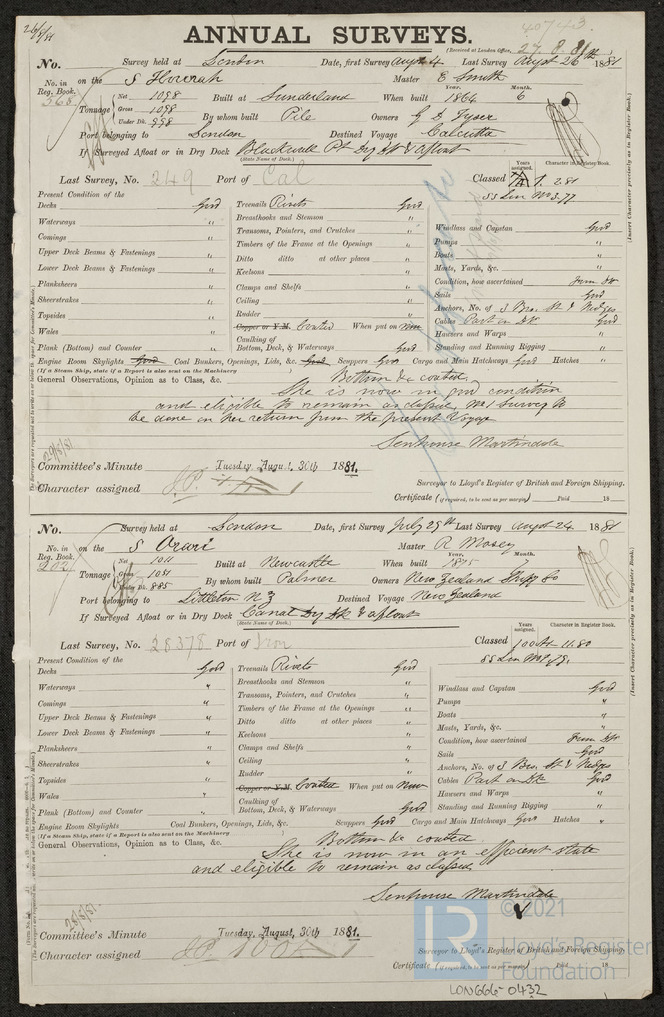 26/8/81
ANNUAL SURVEYS.
40743
(Received at London Office, 27. 8. 81
No. Survey held at London Date, first Survey Augst 4 Last Survey Augst 26th 1881
No. in Reg. Book. 568 on the S Howrah Master E Smith
Tonnage Net 1098 Gross 1098 Under Dk. 998 Built at Sunderland When built Year. 1864 Month. 6
By whom built Pile Owners G D Tyser
Port belonging to London Destined Voyage Calcutta
If Surveyed Afloat or in Dry Dock Blackwall Pt Dry Dk & afloat
(State Name of Dock.)
Last Survey, No. 249 Port of Cal Classed Years assigned. Character in Register Book.
Present Condition of the
Decks Good Treenails Rivets Good
Waterways " Breasthooks and Stemson " Windlass and Capstan Good
Comings " Transoms, Pointers, and Crutches " Pumps "
Upper Deck Beams & Fastenings " Timbers of the Frame at the Openings " Boats "
Lower Deck Beams & Fastenings " Ditto ditto at other places " Masts, Yards, &c. "
Planksheers " Keelsons " Condition, how ascertained from Dk
Sheerstrakes " Clamps and Shelfs " Sails Good
Topsides " Ceiling " Anchors, No. of 3 Brs. St &
Wales " Rudder " Cables Part on Dk Good
Plank (Bottom) and Counter " Copper or Y.M. Coated When put on New Hawsers and Warps "
Caulking of Bottom, Deck, & Waterways Good Standing and Running Rigging "
Engine Room Skylights Good Coal Bunkers, Openings, Lids, &c. Good Scuppers Good Cargo and Main Hatchways Good Hatches "
(If a Steam Ship, state if a Report is also sent on the Machinery
General Observations, Opinion as to Class, &c. Bottom &c coated.
She is now in good condition
and eligible to remain as classed,
be done on her return from the present Voyage
Senhouse Martindale
29/8/81
Committee's Minute Tuesday, August, 30th 1881.
Character assigned
Surveyor to Lloyd's Register of British and Foreign Shipping.
Certificate (if required, to be sent as per margin) Paid 18
No. Survey held at London Date, first Survey July 29th Last Survey Augst 24 1881
No. in Reg. Book. 202 on the S Orari Master R Mosey
Tonnage Net 1011 Gross 1051 Under Dk. 885 Built at Newcastle When built Year. 1875 Month. 7
By whom built Palmer Owners New Zealand Shipp Co
Port belonging to Littleton N Z Destined Voyage New Zealand
If Surveyed Afloat or in Dry Dock Canal Dry Dk & afloat
(State Name of Dock.)
Last Survey, No. 28378 Port of Iron Classed Years assigned. 100 A1 11.80 Character in Register Book.
SS Lon No 1.79.
Present Condition of the
Decks Good Treenails Rivets Good
Waterways " Breasthooks and Stemson " Windlass and Capstan Good
Comings " Transoms, Pointers, and Crutches " Pumps "
Upper Deck Beams & Fastenings " Timbers of the Frame at the Openings " Boats "
Lower Deck Beams & Fastenings " Ditto ditto at other places " Masts, Yards, &c. "
Planksheers " Keelsons " Condition, how ascertained from Dk
Sheerstrakes " Clamps and Shelfs " Sails Good
Topsides " Ceiling " Anchors, No. of 3 Brs. St &
Wales " Rudder " Cables Part on Dk Good
Plank (Bottom) and Counter " Copper or Y.M. Coated When put on New Hawsers and Warps "
Caulking of Bottom, Deck, & Waterways Good Standing and Running Rigging "
Engine Room Skylights Coal Bunkers, Openings, Lids, &c. Scuppers Good Cargo and Main Hatchways Good Hatches "
(If a Steam Ship, state if a Report is also sent on the Machinery
General Observations, Opinion as to Class, &c. Bottom &c coated
She is now in an efficient state
and eligible to remain as classed
Senhouse Martindale
29/8/81.
Committee's Minute Tuesday, August, 30th 1881.
Character assigned
Surveyor to Lloyd's Register of British and Foreign Shipping.
Certificate (if required, to be sent as per margin) Paid 18
(Insert Character precisely as in Register Book.)
(Insert Character precisely as in Register Book.)
LR
© 2021
Lloyd's Register
Foundation
LON666-0432